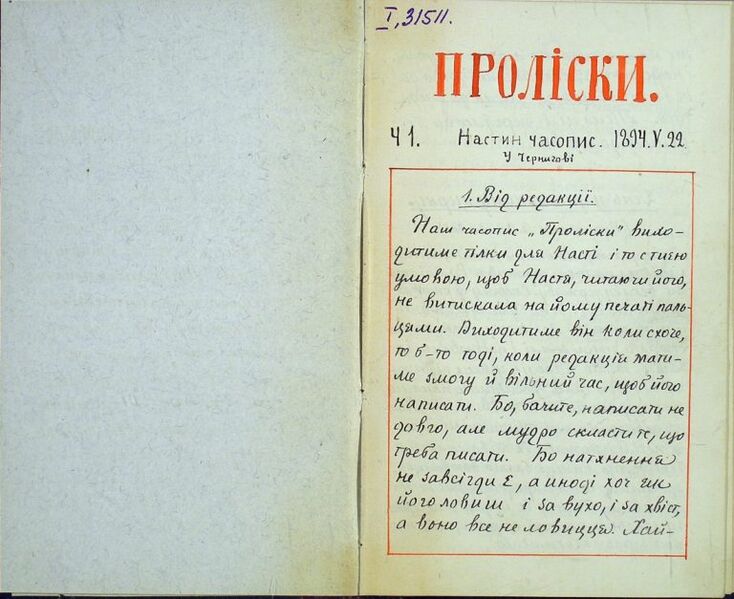 I,31511.
ПРОЛІСКИ.
Ч 1. Настин часопис. 1894.V.22
У Чернигові
1. Від редакції.
Наш часопис „Проліски" вихо-
дитиме тілки для Насті і то с тиєю
умовою, щоб Настя, читаючи його,
не витискала на йому печаті паль-
цями. Виходитиме він коли схоче,
то б-то тоді, коли редакція мати-
ме змогу й вільний час, щоб його
написати. Бо, бачите, написати не
довго, але мудро скласти те, що
треба писати. Бо натхнення
не завсігди є, а иноді хоч як
його ловиш і за вухо, і за хвіст,
а воно все не ловицця. Хай-